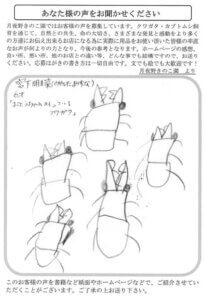 あなた様の声をお聞かせください
月夜野きのこ園ではお客様の声を募集しています。クワガタ・カブトムシ飼
育を通じて、自然との共生、命の大切さ、さまざまな発見と感動をより多く
の方達にお伝え出来るお店になる為に実際に商品をお使い頂いた皆様の率直
なお声が何よりの力となり、今後の参考となります。ホームページの感想、
良い所、悪い所、他のお店との違い等、どんな事でも結構ですので、お送り下
さい。応募はがきの書き方は一切自由です。文でも絵でも大歓迎です!
月夜野きのこ園 より
6才
クワガタ」
このお客様の声を書籍など紙面やホームページなどで、ご紹介させていた
だくことがございます。ご了承の上お送り下さい。